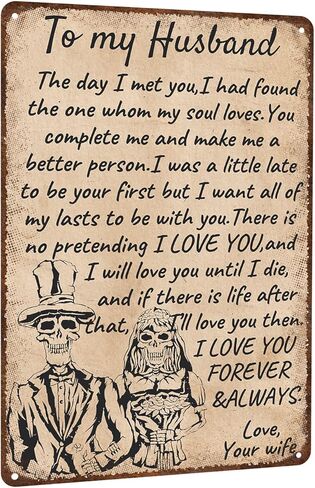 To my Husband
The day I met you,I had found
the one whom my soul loves.You
complete me and make me a
better person.I was a little late
to be your first but I want all of
my lasts to be with you.There is
no pretending I LOVE YOU,and
I will love you until I die,
and if there is life after
that, I'll love you then.
I LOVE YOU
FOREVER
&ALWAYS.
Love,
Your wife